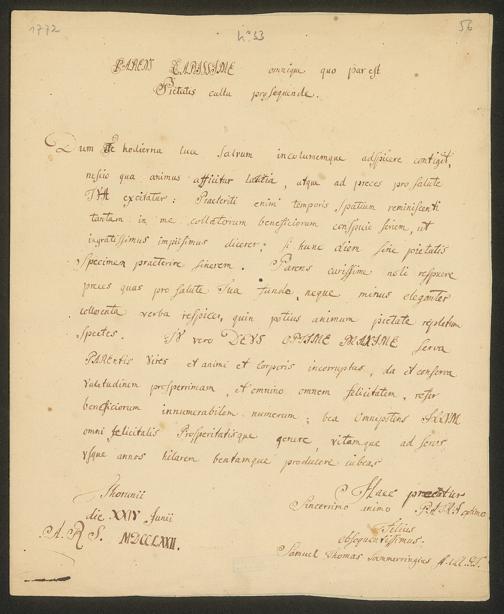 1772
No. 33
56
PARENS CARISSIME omnique quo par est
Pietatis cultu prosequende.
Dum Te hodierna luce Salvum incolumemque adspicere contigit,
nescio qua animus afficitur laetitia, atque ad preces pro salute
TVA excitatur: Praeteriti enim temporis Spatium reminiscenti
tantam in me collatorum beneficiorum conspicio Seriem, ut
ingratissimus impiissimus dicerer; si hunc diem sine pietatis
Specimen praeterire sinerem. Parens carissime noli respuere
preces quas pro Salute Tua fundo, neque minus eleganter
cohaerentia verba respicias, quin potius animum pietate repletum
Spectes. vero DEVS OPTIME MAXIME Serva
PARENTIS Vires et animi et Corporis incorruptas, da et conserva
Valitudinem prosperrimam, et omnino omnem felicitatem, refer
beneficiorum innumerabilem numerum; bea Omnipotens ILLVM
omni felicitatis Prosperitatisque genere, vitamque ad seros
vsque annos hilarem beatamque producere iubeas
Thorunii
die XXIV Junii
A. R. S. MDCCLXXII.
Haec precatur
Sincerrimo animo PATRIS optimo
Filius
obsequentissimus.
Samuel Thomas Sommerringius